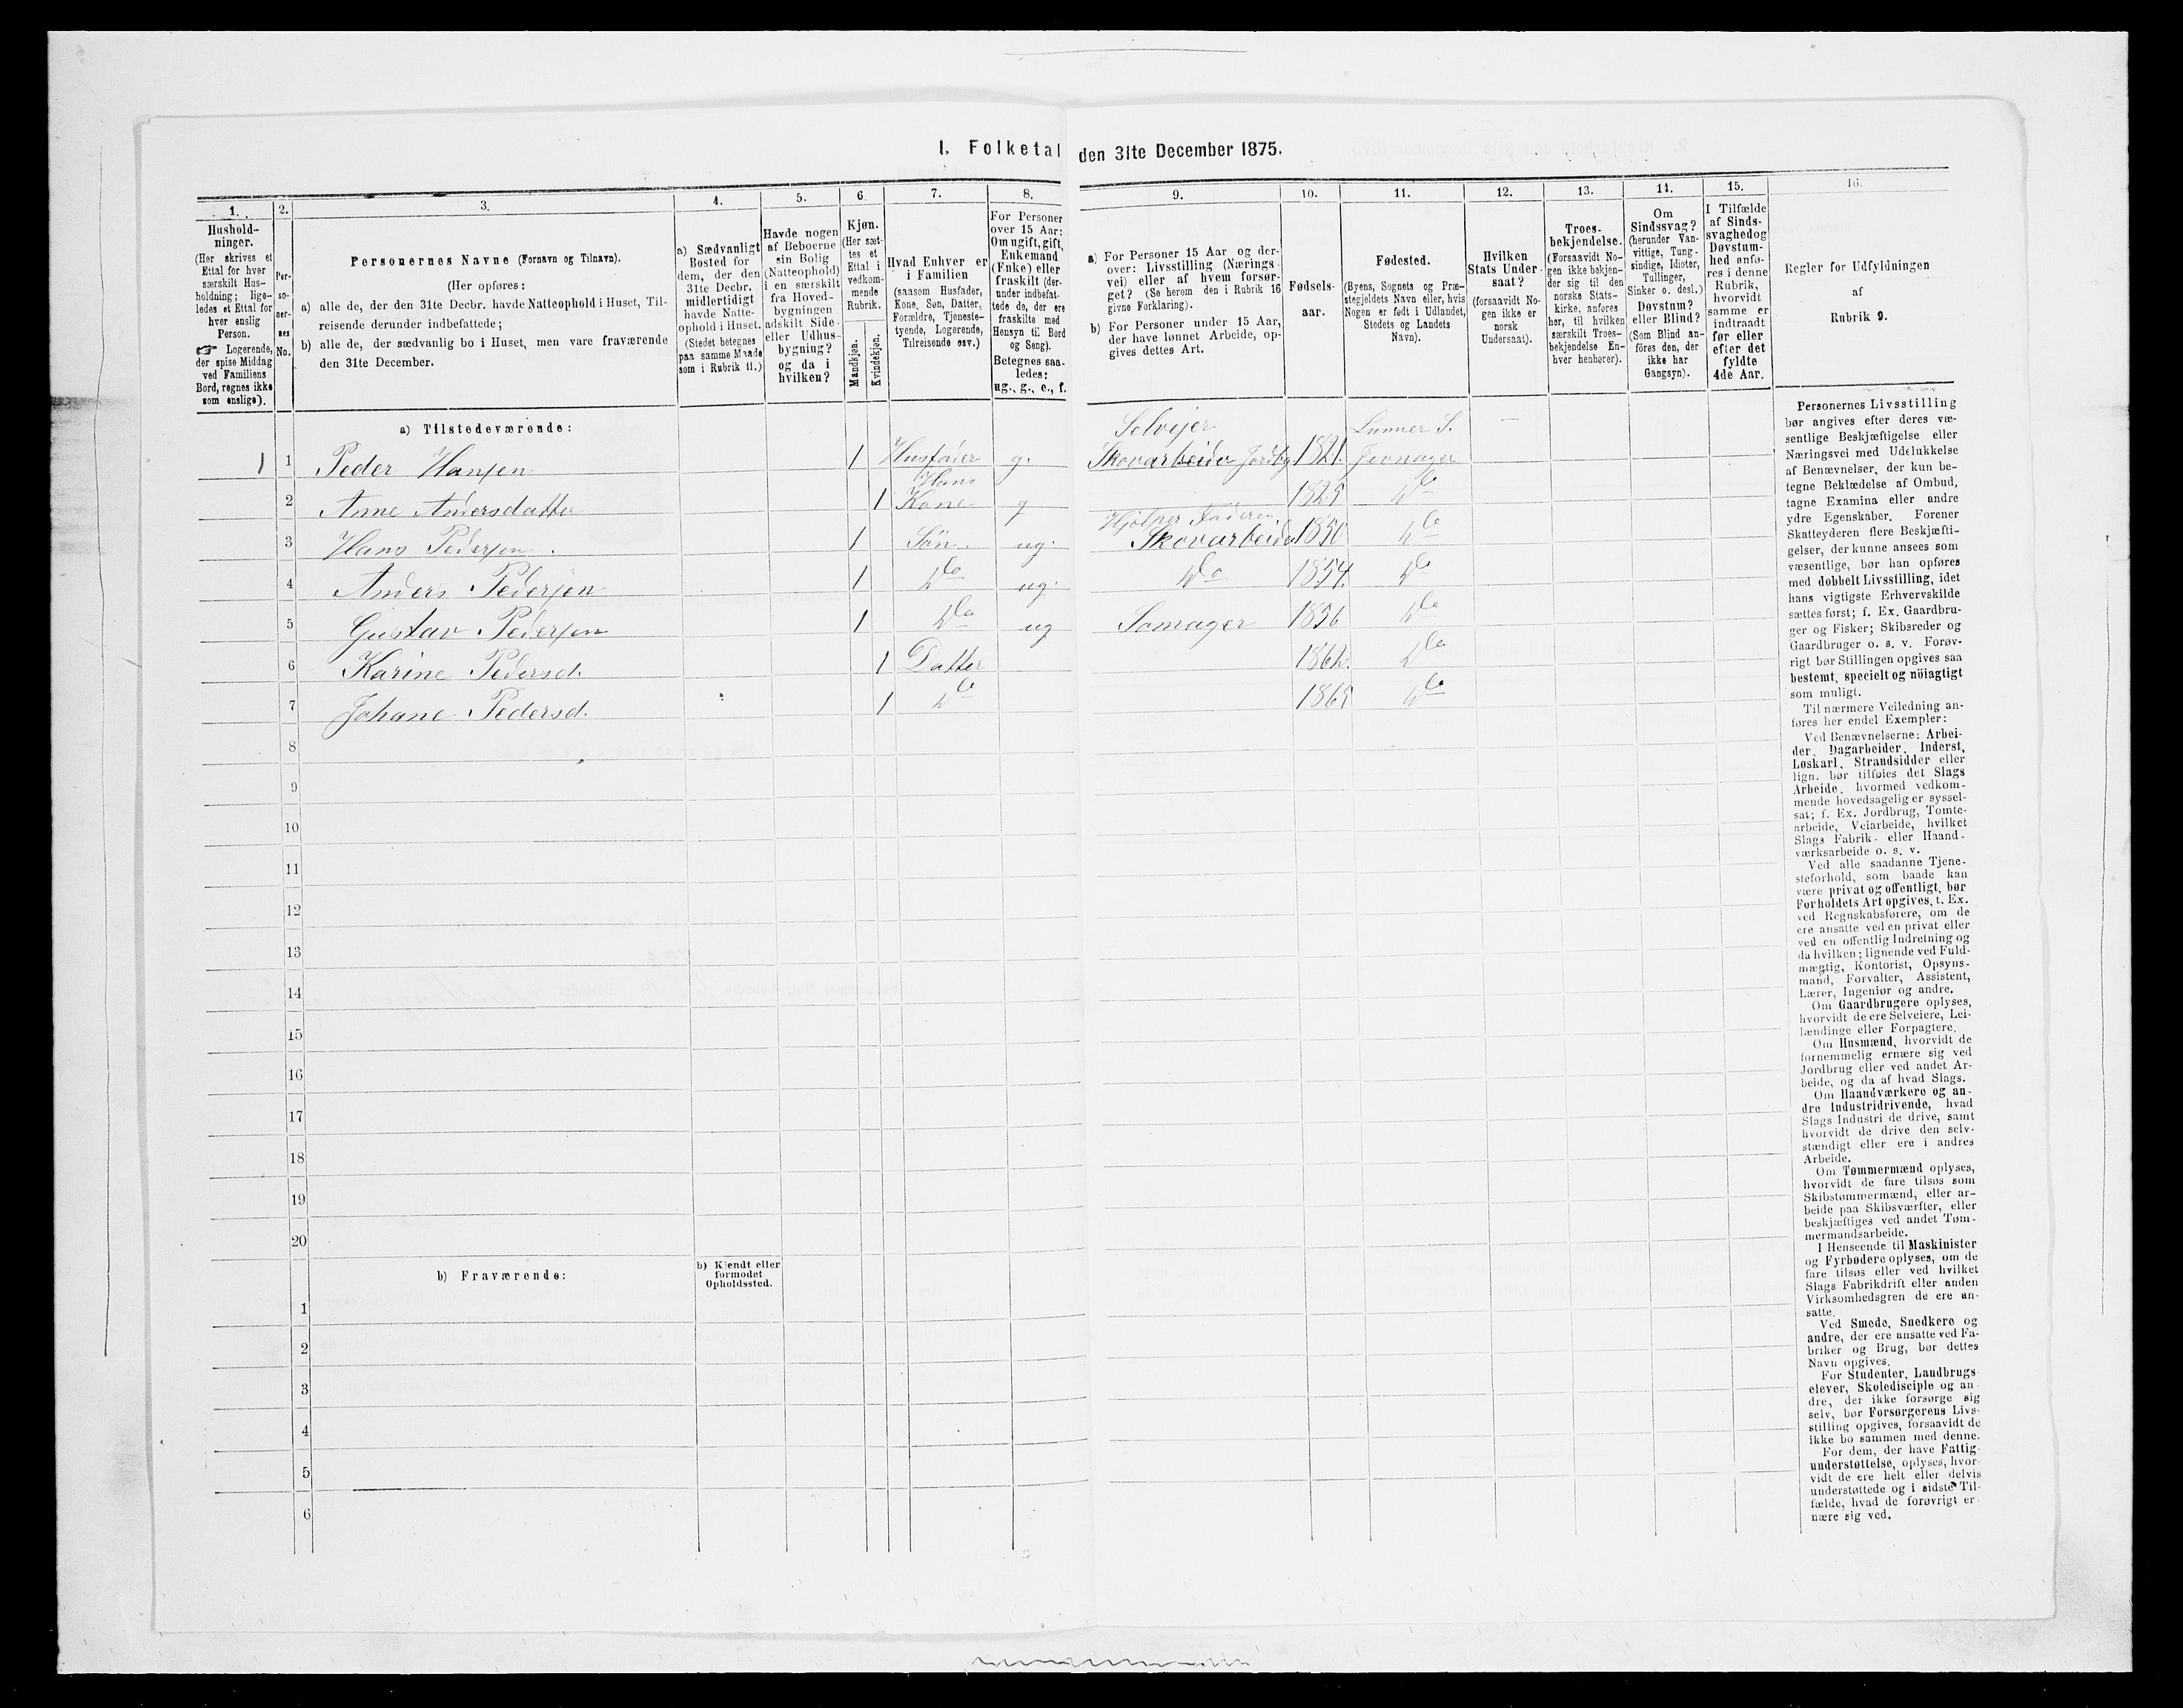 1. Folketal den 31te December 1875.
1. 2. 3. 4. 5. 6. 7. 8. 9. 10. 11. 12. 13. 14. 15. 16.
Hushold-
ninger.
(Her skrives et
Ettal for hver
særskilt Hus-
holdning; lige-
ledes et Ettal for
hver enslig
Person.
☞ Logerende,
der spise Middag
ved Familiens
Bord, regnes ikke
som enslige).
Per-
so-
ner-
nes
No.
Personernes Navne (Fornavn og Tilnavn).
(Her opføres:
a) alle de, der den 31te Decbr. havde Natteophold i Huset, Til-
reisende derunder indbefattede;
b) alle de, der sædvanlig bo i Huset, men vare fraværende
den 31te December.
a) Sædvanligt
Bosted for
dem, der den
31te Decbr.
midlertidigt
havde Natte-
ophold i Huset.
(Stedet betegnes
paa samme Maade
som i Rubrik 11.)
Havde nogen
af Beboerne
sin Bolig
(Natteophold)
i en særskilt
fra Hoved-
bygningen
adskilt Side-
eller Udhus-
bygning?
og da i
hvilken?
Kjøn.
(Her sæt-
tes et
Ettal i
vedkom-
mende
Rubrik.
Mandkjøn.
Kvindekjøn.
Hvad Enhver er
i Familien
(saasom Husfader,
Kone, Søn, Datter,
Forældre, Tjeneste-
tyende, Logerende,
Tilreisende osv.)
For Personer
over 15 Aar:
Om ugift, gift,
Enkemand
(Enke) eller
fraskilt (der-
under indbefat-
tede de, der ere
fraskilte med
Hensyn til Bord
og Seng).
Betegnes saa-
ledes:
ug., g., e., f.
a) For Personer 15 Aar og der-
over: Livsstilling (Nærings-
vei) eller af hvem forsør-
get? (Se herom den i Rubrik 16
givne Forklaring).
b) For Personer under 15 Aar,
der have lønnet Arbeide, op-
gives dettes Art.
Fødsels-
aar.
Fødested.
(Byens, Sognets og Præ-
stegjeldets Navn eller, hvis
Nogen er født i Udlandet,
Stedets og Landets
Navn).
Hvilken
Stats Under-
saat?
(forsaavidt No-
gen ikke er
norsk
Undersaat).
Troes-
bekjendelse.
(Forsaavidt No-
gen ikke bekjen-
der sig til den
norske Stats-
kirke, anføres
her, til hvilken
særskilt Troes-
bekjendelse En-
hver henhører).
Om
Sindssvag?
(herunder Van-
vittige, Tung-
sindige, Idioter,
Tullinger,
Sinker o. desl.)
Døvstum?
eller Blind?
(Som Blind an-
føres den, der
ikke har
Gangsyn).
I Tilfælde
af Sinds-
svaghed og
Døvstum-
hed anfø-
res i denne
Rubrik,
hvorvidt
samme er
indtraadt
før eller
efter det
fyldte
4de Aar.
Regler for Udfyldningen
af
Rubrik 9.
a) Tilstedeværende:
Selvejer Lunner S.
1 1 Peder Hansen 1 Husfader g. Skovarbeider Jordbg 1821. Jevnager
Hans
2 Anne Andersdatter 1 Kone g 1825 Do
Hjælper Faderen
3 Hans Pedersen. 1 Søn. ug. Skovarbeider 1850 Do
4 Anders Pedersen 1 Do ug. Do 1854. Do
5 Gustav Pedersen 1 Do ug Somager 1856 Do
6 Karine Pedersd. 1 Datter 1862. Do
7 Johane Pedersd. 1 Do 1865 Do
8
9
10
11
12
13
14
15
16
17
18
19
20
b) Fraværende:
b) Kjendt eller
formodet
Opholdssted.
1
2
3
4
5
6
Personernes Livsstilling
bør angives efter deres væ-
sentlige Beskjæftigelse eller
Næringsvei med Udelukkelse
af Benævnelser, der kun be-
tegne Beklædelse af Ombud,
tagne Examina eller andre
ydre Egenskaber. Forener
Skatteyderen flere Beskjæfti-
gelser, der kunne ansees som
væsentlige, bør han opføres
med dobbelt Livsstilling, idet
hans vigtigste Erhvervskilde
sættes først; f. Ex. Gaardbru-
ger og Fisker; Skibsreder og
Gaardbruger o. s. v. Forøv-
rigt bør Stillingen opgives saa
bestemt, specielt og nöiagtigt
som muligt.
Til nærmere Veiledning an-
føres her endel Exempler:
Ved Benævnelserne: Arbei-
der, Dagarbeider, Inderst,
Løskarl, Strandsidder eller
lign. bør tilføies det Slags
Arbeide, hvormed vedkom-
mende hovedsagelig er syssel-
sat; f. Ex. Jordbrug, Tomte-
arbeide, Veiarbeide, hvilket
Slags Fabrik- eller Haand-
værksarbeide o. s. v.
Ved alle saadanne Tjene-
steforhold, som baade kan
være privat og offentligt, bør
Forholdets Art opgives, t. Ex.
ved Regnskabsførere, om de
ere ansatte ved en privat eller
ved en offentlig Indretning og
da hvilken; lignende ved Fuld-
mægtig, Kontorist, Opsyns-
mand, Forvalter, Assistent,
Lærer, Ingeniør og andre.
Om Gaardbrugere oplyses,
hvorvidt de ere Selveiere, Lei-
lændinge eller Forpagtere.
Om Husmænd, hvorvidt de
fornemmelig ernære sig ved
Jordbrug eller ved andet Ar-
beide, og da af hvad Slags.
Om Haandværkere og an-
dre Industridrivende, hvad
Slags Industri de drive, samt
hvorvidt de drive den selv-
stændigt eller ere i andres
Arbeide.
Om Tømmermænd oplyses,
hvorvidt de fare tilsøs som
Skibstømmermænd, eller ar-
beide paa Skibsværfter, eller
beskjæftiges ved andet Tøm-
mermandsarbeide.
I Henseende til Maskinister
og Fyrbødere oplyses, om de
fare tilsøs eller ved hvilket
Slags Fabrikdrift eller anden
Virksomhedsgren de ere an-
satte.
Ved Smede, Snedkere og
andre, der ere ansatte ved Fa-
briker og Brug, bør dettes
Navn opgives.
For Studenter, Landbrugs-
elever, Skoledisciple og an-
dre, der ikke forsørge sig
selv, bør Forsørgerens Livs-
stilling opgives, forsaavidt de
ikke bo sammen med denne.
For dem, der have Fattig-
understøttelse, oplyses, hvor-
vidt de ere helt eller delvis
understøttede og i sidste Til-
fælde, hvad de forøvrigt er-
nære sig ved.